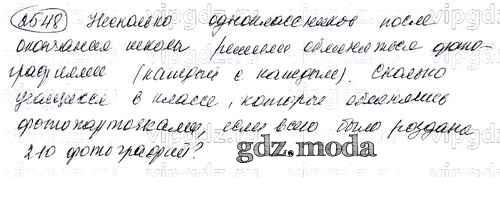 №548 Несколько одноклассников после
окончания школы решили обменяться фото-
графиями (каждый с каждым). Сколько
учащихся в классе, которые обменялись
фотокарточками, если всего было роздано
210 фотографий?
gdz.moda